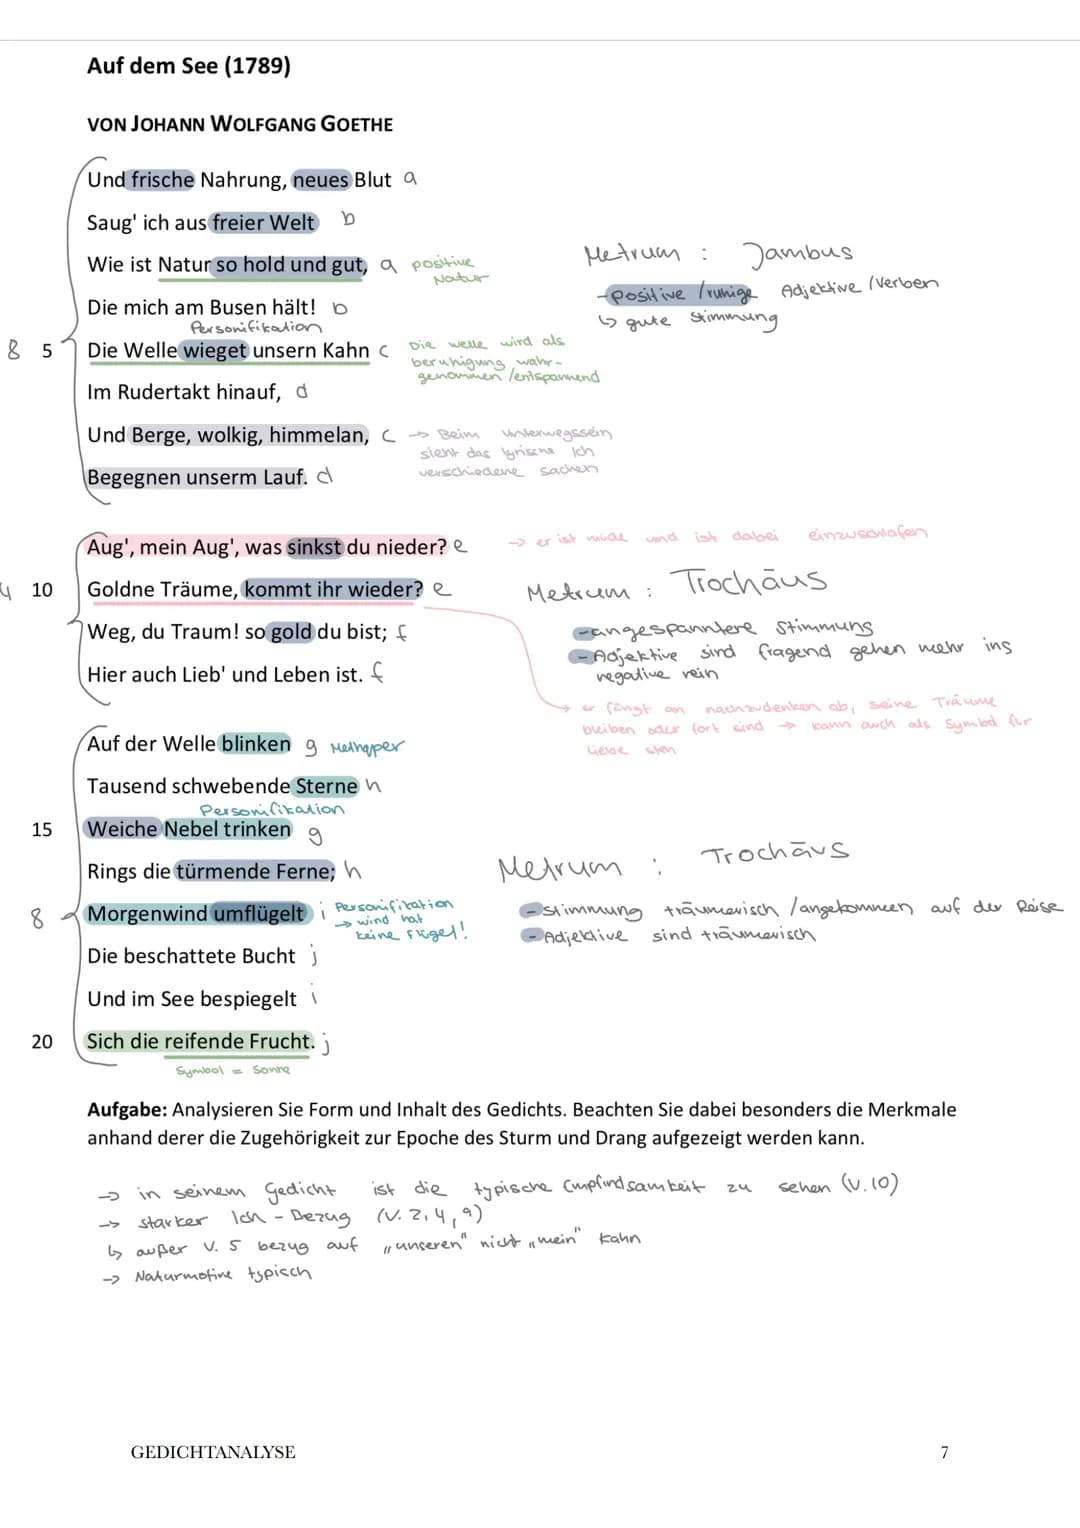 Auf dem See (1789)
VON JOHANN WOLFGANG GOETHE
Und frische Nahrung, neues Blut a
Saug' ich aus freier Welt b
Wie ist Natur so hold und gut, a positive Natur
Metrum : Jambus
Die mich am Busen hält! b
- positive / ruhige Adjektive / Verben
↳ gute Stimmung
Personifikation
8 5 Die Welle wieget unsern Kahn c
Die welle wird als
beruhigung wahr-
genommen / entspannend
Im Rudertakt hinauf, d
Und Berge, wolkig, himmelan, c
→ Beim unterwegssein
sieht das lyrische Ich
verschiedene Sachen
Begegnen unserm Lauf. d
Aug', mein Aug', was sinkst du nieder? e
→ er ist müde und ist dabei einzuschlafen
4 10 Goldne Träume, kommt ihr wieder? e
Metrum : Trochäus
Weg, du Traum! so gold du bist; f
- angespanntere Stimmung
- Adjektive sind fragend gehen mehr ins
negative rein
Hier auch Lieb' und Leben ist. f
→ er fängt an nachzudenken ob, seine Träume
bleiben oder fort sind → kann auch als Symbol für
liebe sten
Auf der Welle blinken g Methaper
Tausend schwebende Sterne h
Personifikation
15 Weiche Nebel trinken g
Rings die türmende Ferne; h
Metrum : Trochäus
8 Morgenwind umflügelt i
Personifikation
→ wind hat
keine Flügel!
- Stimmung träumerisch / angekommen auf der Reise
- Adjektive sind träumerisch
Die beschattete Bucht j
Und im See bespiegelt i
20 Sich die reifende Frucht. j
Symbol = Sonne
Aufgabe: Analysieren Sie Form und Inhalt des Gedichts. Beachten Sie dabei besonders die Merkmale
anhand derer die Zugehörigkeit zur Epoche des Sturm und Drang aufgezeigt werden kann.
→ in seinem Gedicht ist die typische Empfindsamkeit zu sehen (V.10)
→ starker Ich - Bezug (V. 2, 4, 9)
↳ außer V. 5 bezug auf „unseren" nicht „mein" Kahn
→ Naturmotive typisch
GEDICHTANALYSE 7